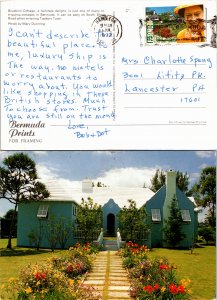 Bluebird Cottage, a Bermuda delight, is just one of many in-
triguing cottages in Bermuda. It can be seen on South
Road when entering Tuckers Town.
Photo by Mary Dunning
I can't describe
beautiful place to
me, luxury ship is
the way. No motels
or restaurants to
worry about. You would
like shopping in these
British stores. Much
to choose from. Trust
you are still on the mend
Love,
Bob + Dot
Mrs Charlotte Spang
Lititz Pk
Lancaster PA
17601
Bermuda
Prints
FOR FRAMING